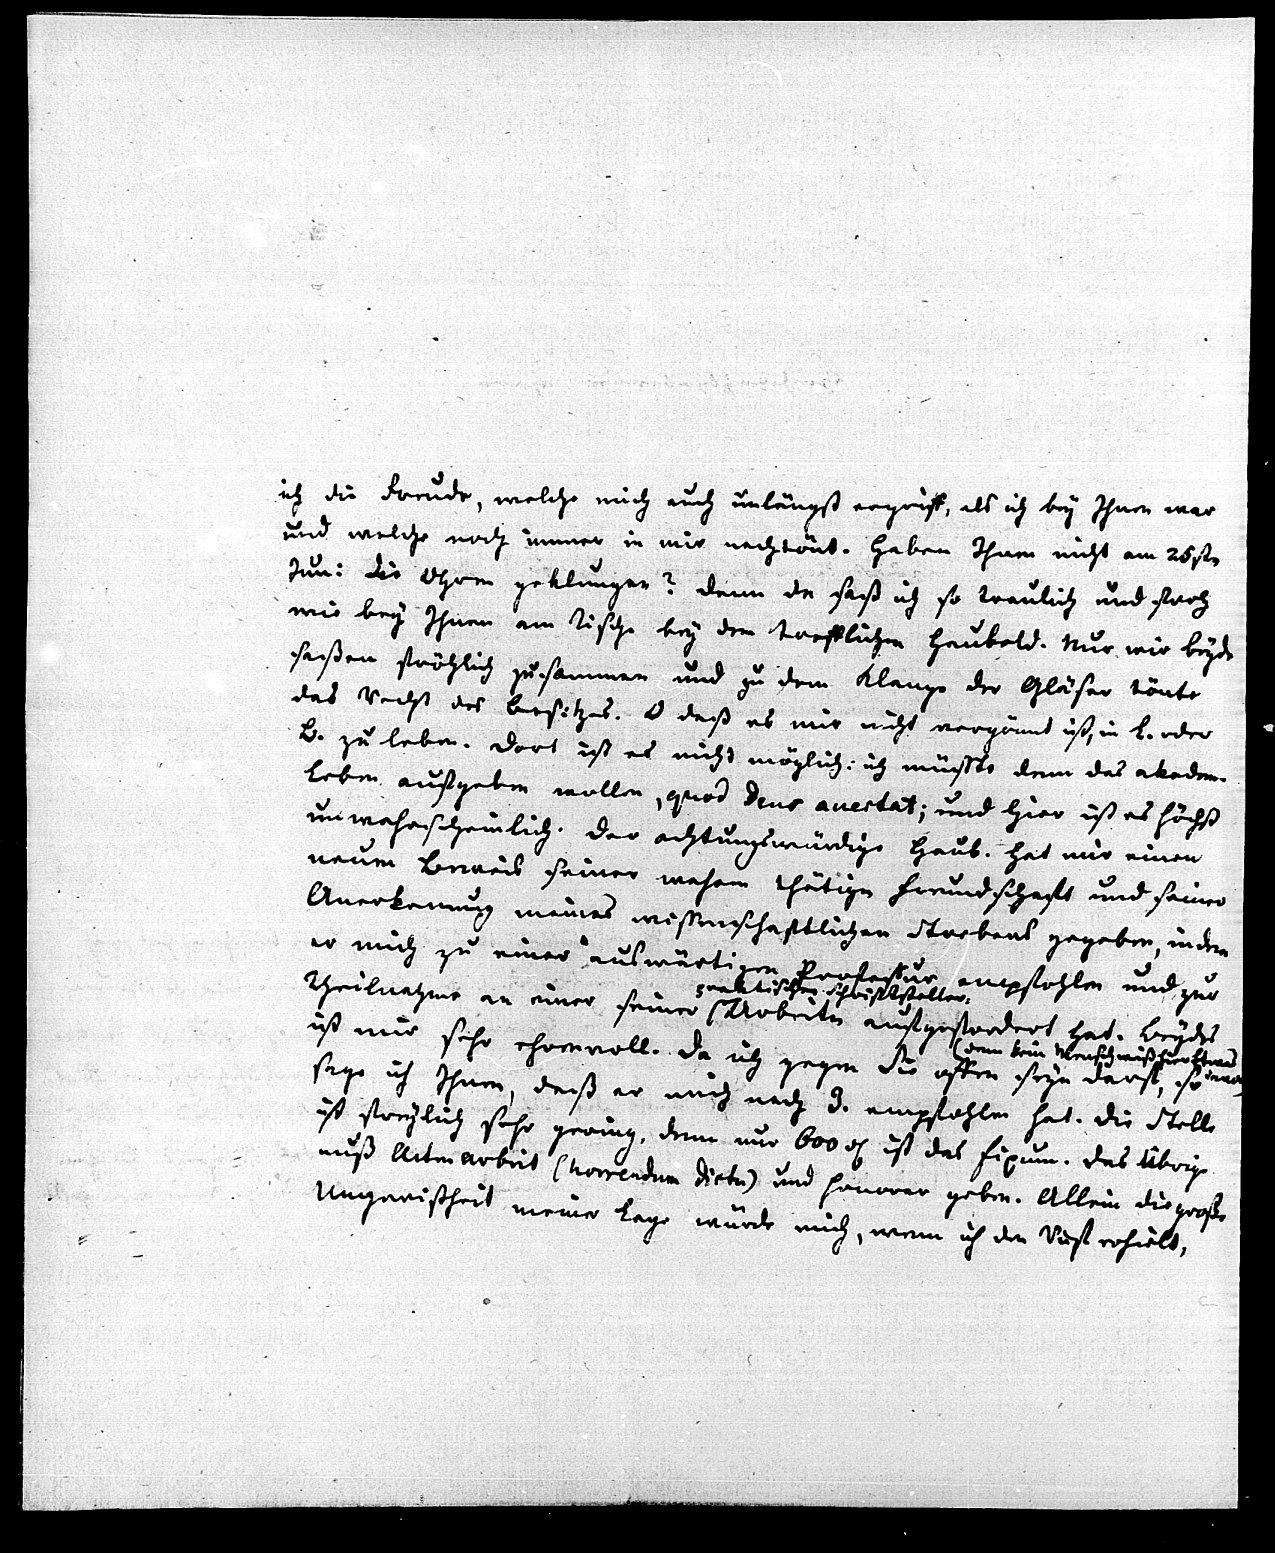 ich die Freude, welche mich auch unlängst ergriff, als ich bey Ihnen war
und welche noch immer in mir nachtönt. Haben Ihnen nicht am 25sten
Jun: die Ohren geklungen? Denn da saß ich so traulich und froh
wie bey Ihnen am Tische bey dem trefflichen Haubold. Nur wir beyde
saßen fröhlich zusammen und zu dem Klange der Gläser tönte
das Recht des Besitzes. O daß es mir nicht vergönnt ist, in L. oder
B. zu leben. Dort ist es nicht möglich: ich müsste denn das akadem.
Leben aufgeben wollen, quod Deus avertat; und hier ist es höchst
unwahrscheinlich. Der achtungswürdige Haub. hat mir einen
neuen Beweis seiner wahren thätigen Freundschaft und seiner
Anerkennung meines wissenschaftlichen Strebens gegeben, indem
er mich zu einer auswärtigen Professur empfohlen und zur
praktischen schriftsteller.
Theilnahme an einer seiner Arbeiten aufgefordert hat. Beydes
ist mir sehr ehrenvoll. Da ich gegen Sie offen seyn darf, so
(denn kein Mensch weiß hier Etwas davon)
sage ich Ihnen, daß er mich nach J. empfohlen hat. Die Stelle
ist freylich sehr gering, denn nur 600 rh ist das fixum. Das Übrige
muß Actenarbeit (horrendum dictu) und honorar geben. Allein die große
Ungewißheit meiner Lage würde mich, wenn ich den Ruf erhielt,